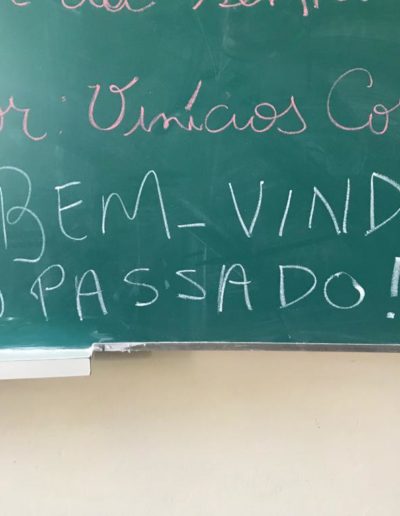 or: Vinícios Co
BEM-VIND
O PASSADO!